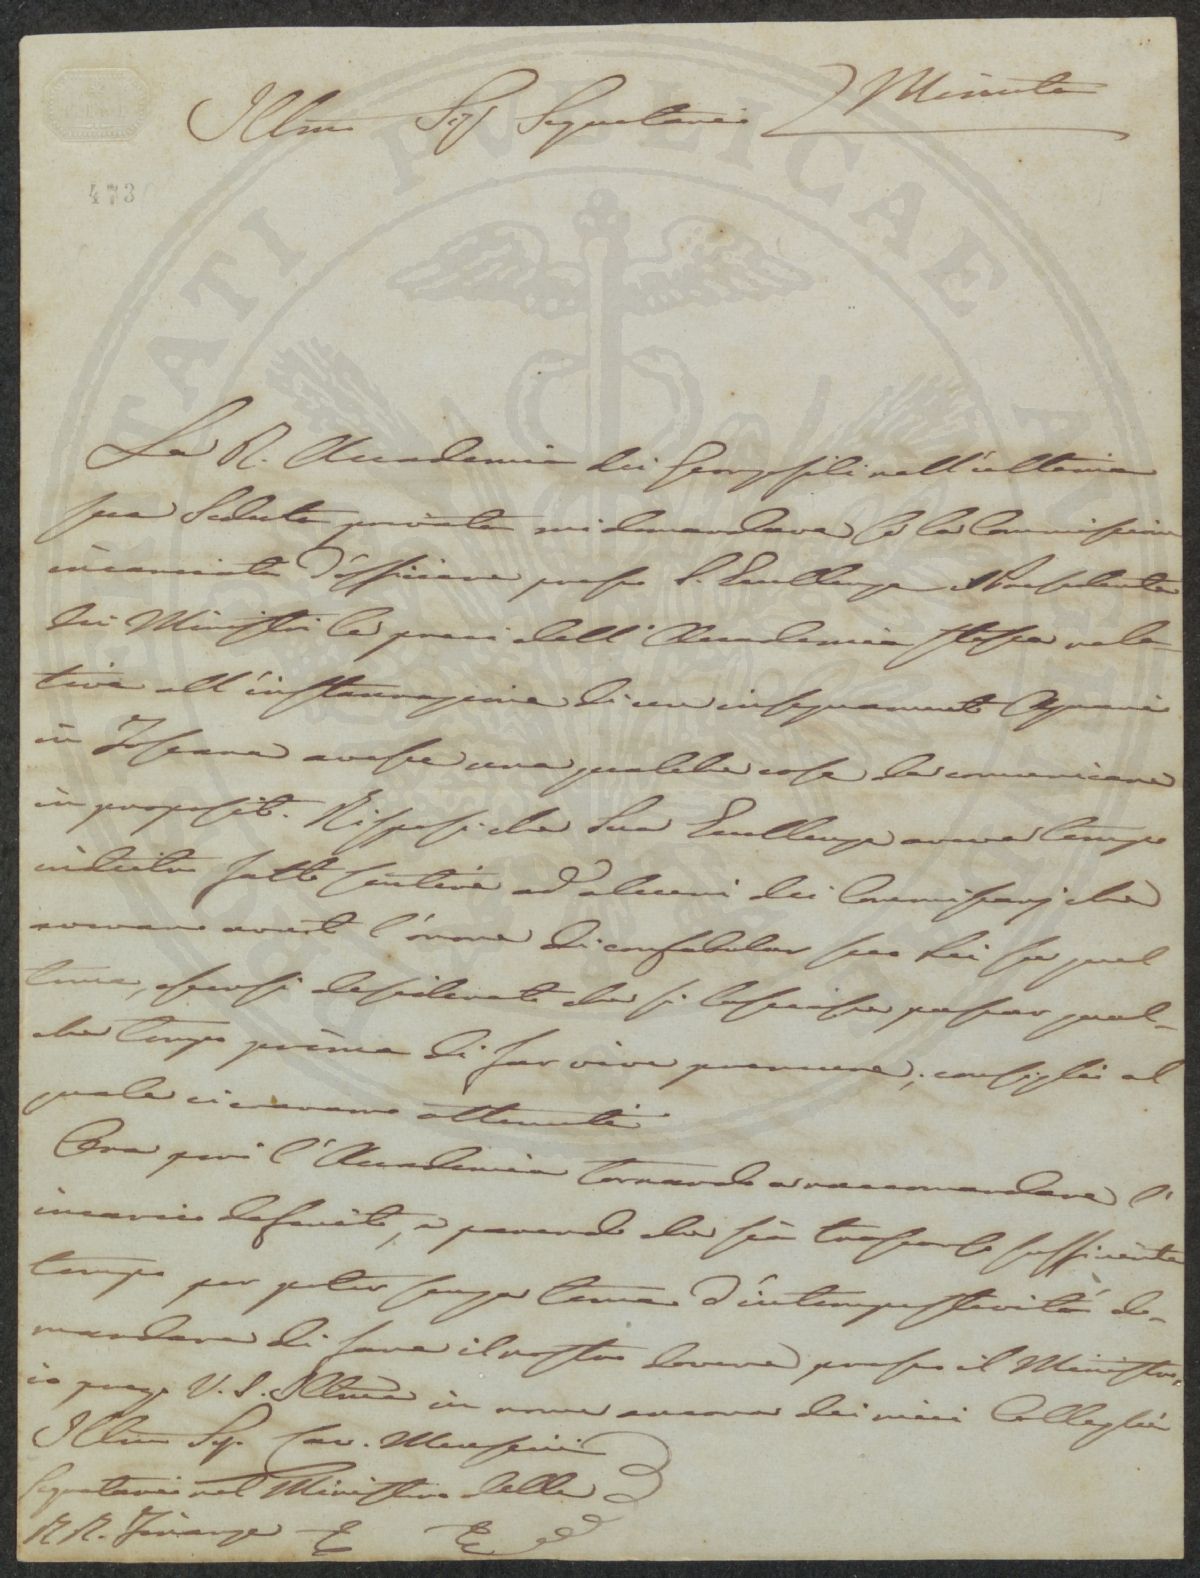 Minuta
Illmo Sigr Segretario
473
La R. Accademia dei Georgofili nell'ultima
sua Seduta privata mi domandava se la Commissione
incaricata d'officiare presso S. Eccellenza il Presidente
dei Ministri le preci dell'Accademia stessa rela-
tive all'instaurazione di un insegnamento Agrario
in Toscana avesse una qualche cosa da comunicare
in proposito. Risposi che Sua Eccellenza aveva tempo
indietro fatto sentire ad alcuni dei Commissarj che
avevano avuto l'onore di confabular seco Lei su quel
tema, essersi desiderato che si lasciasse passar qual-
che tempo prima di far vive premure; consiglio al
quale ci eravamo attenuti.
Ora però l'Accademia tornando a raccomandare l'
incarico deferito, e parendo che sia trascorso sufficiente
tempo per poter senza tema d'intempestività do-
mandare di fare il nostro dovere presso il Ministro,
io prego V. S. Illma in nome ancora dei miei Colleghi
Illmo Sigr Cav.
Segretario nel Ministero delle
RR. Finanze